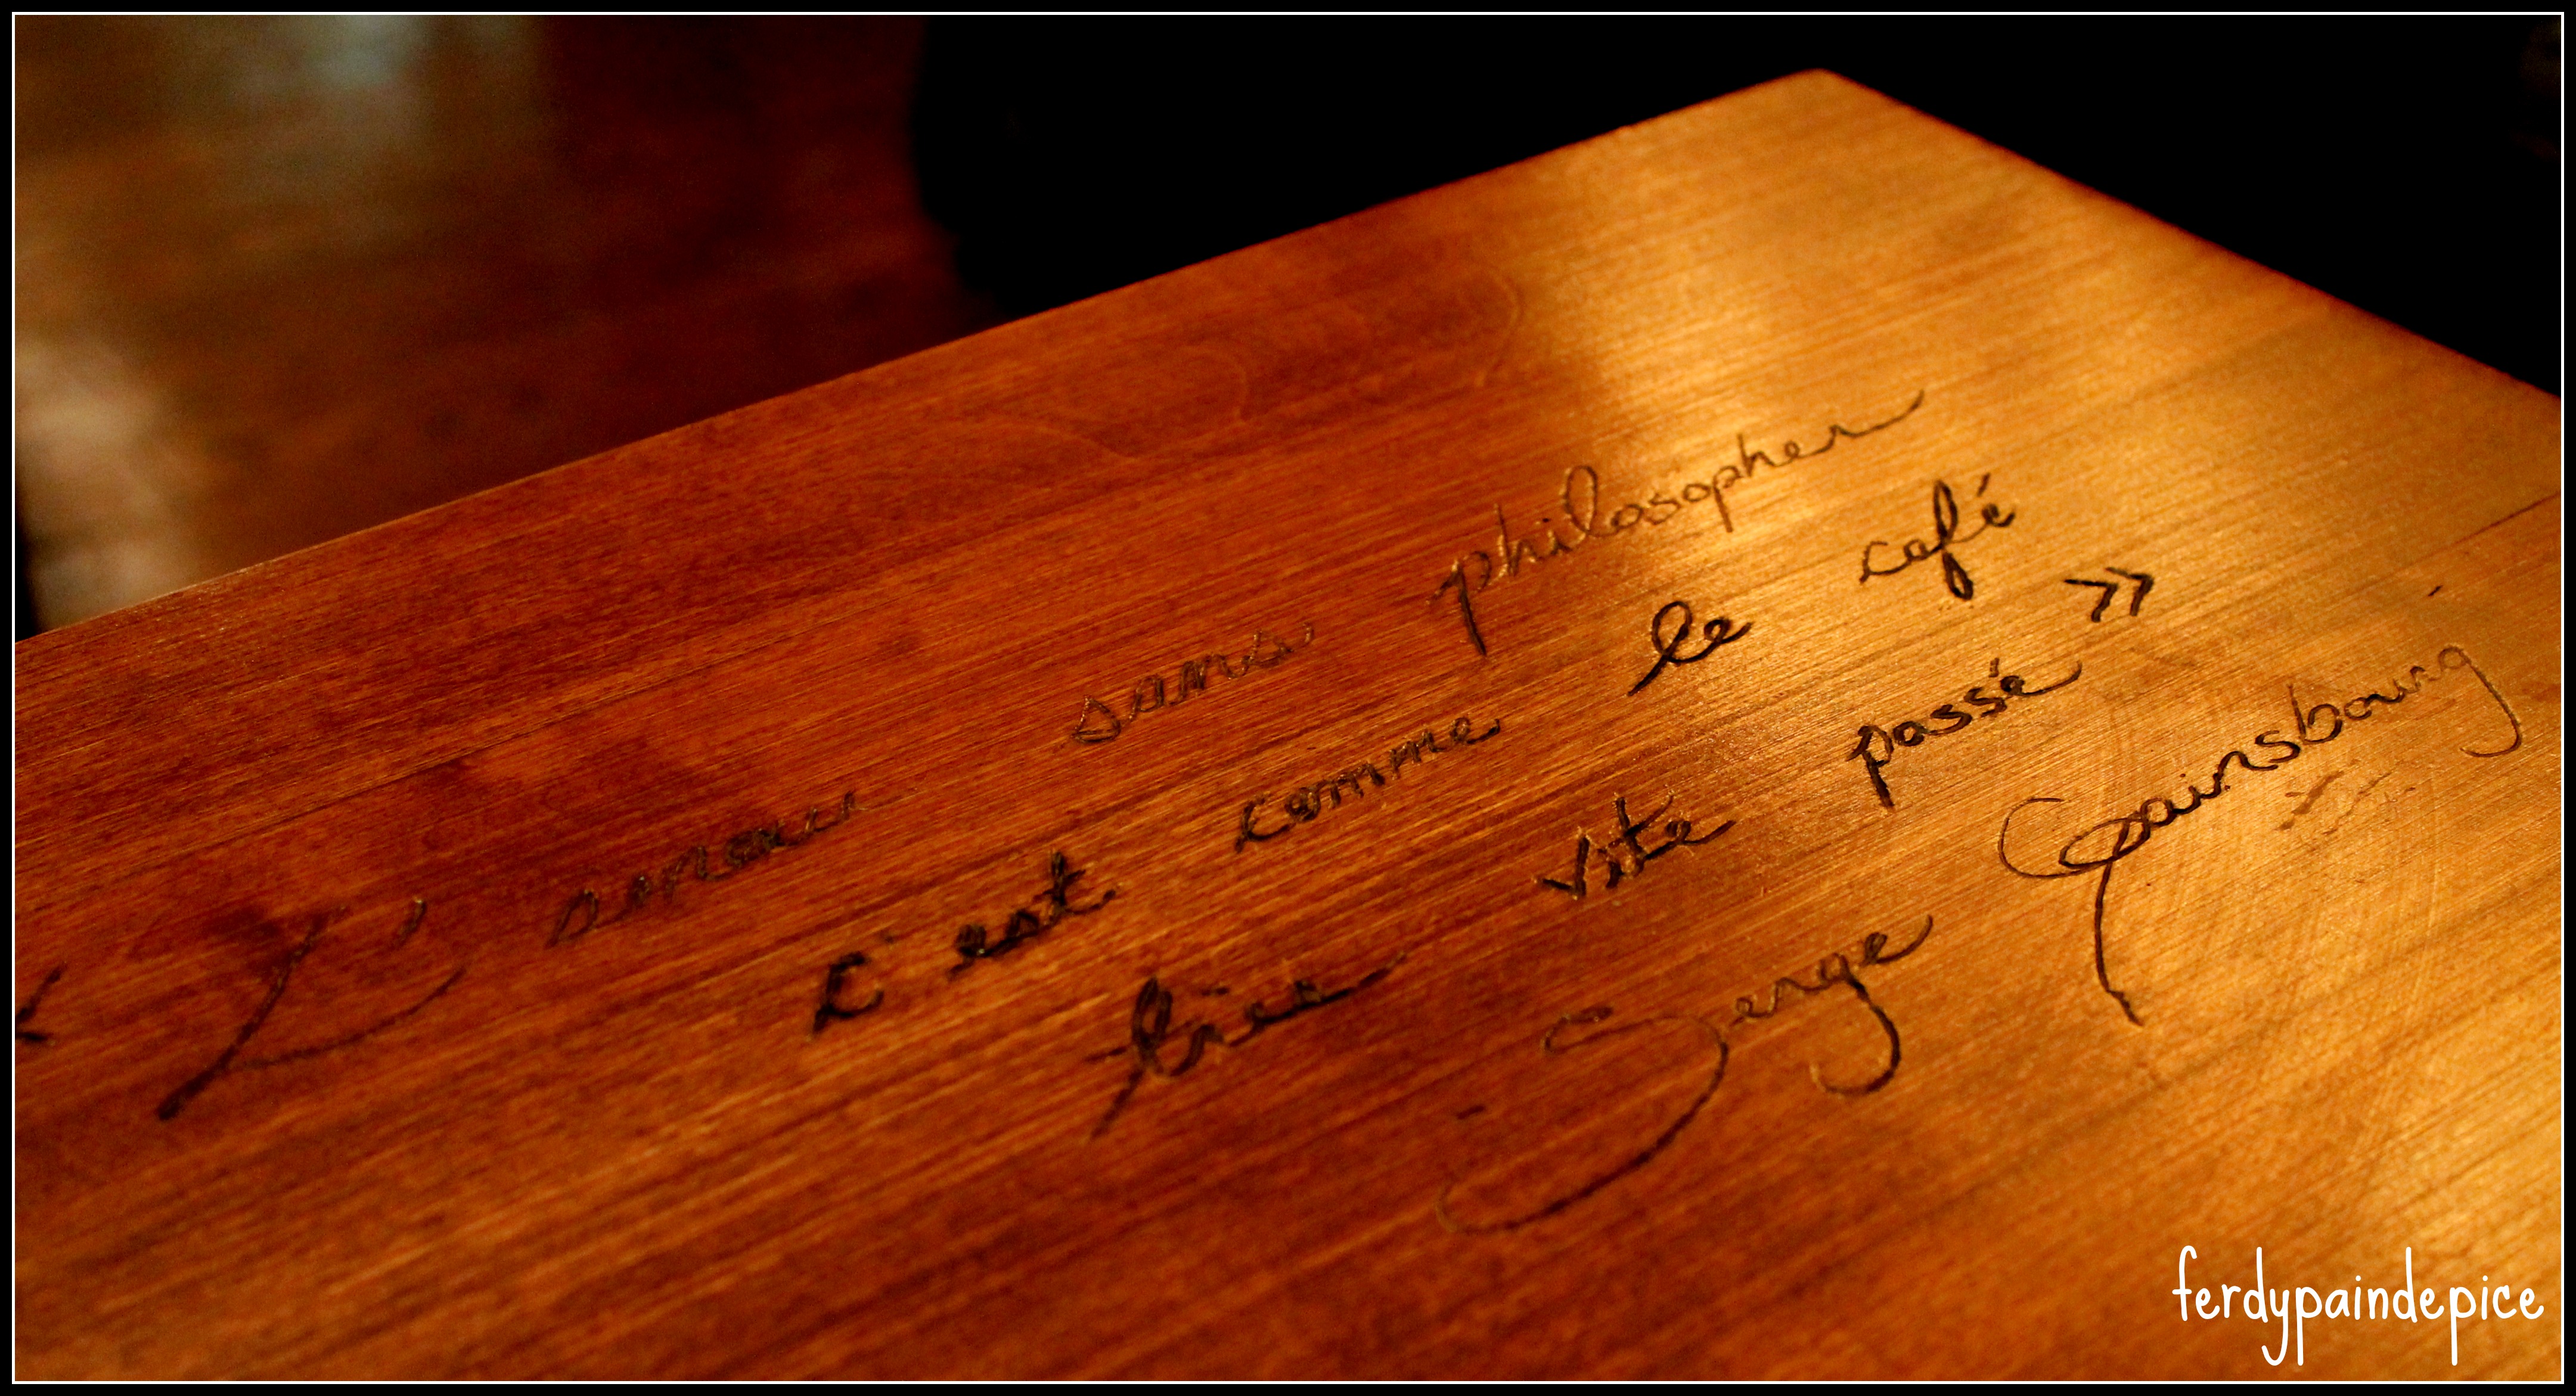 « L'amour sans philosopher
c'est comme le café
bien vite passé »
Serge Gainsbourg
ferdypaindepice